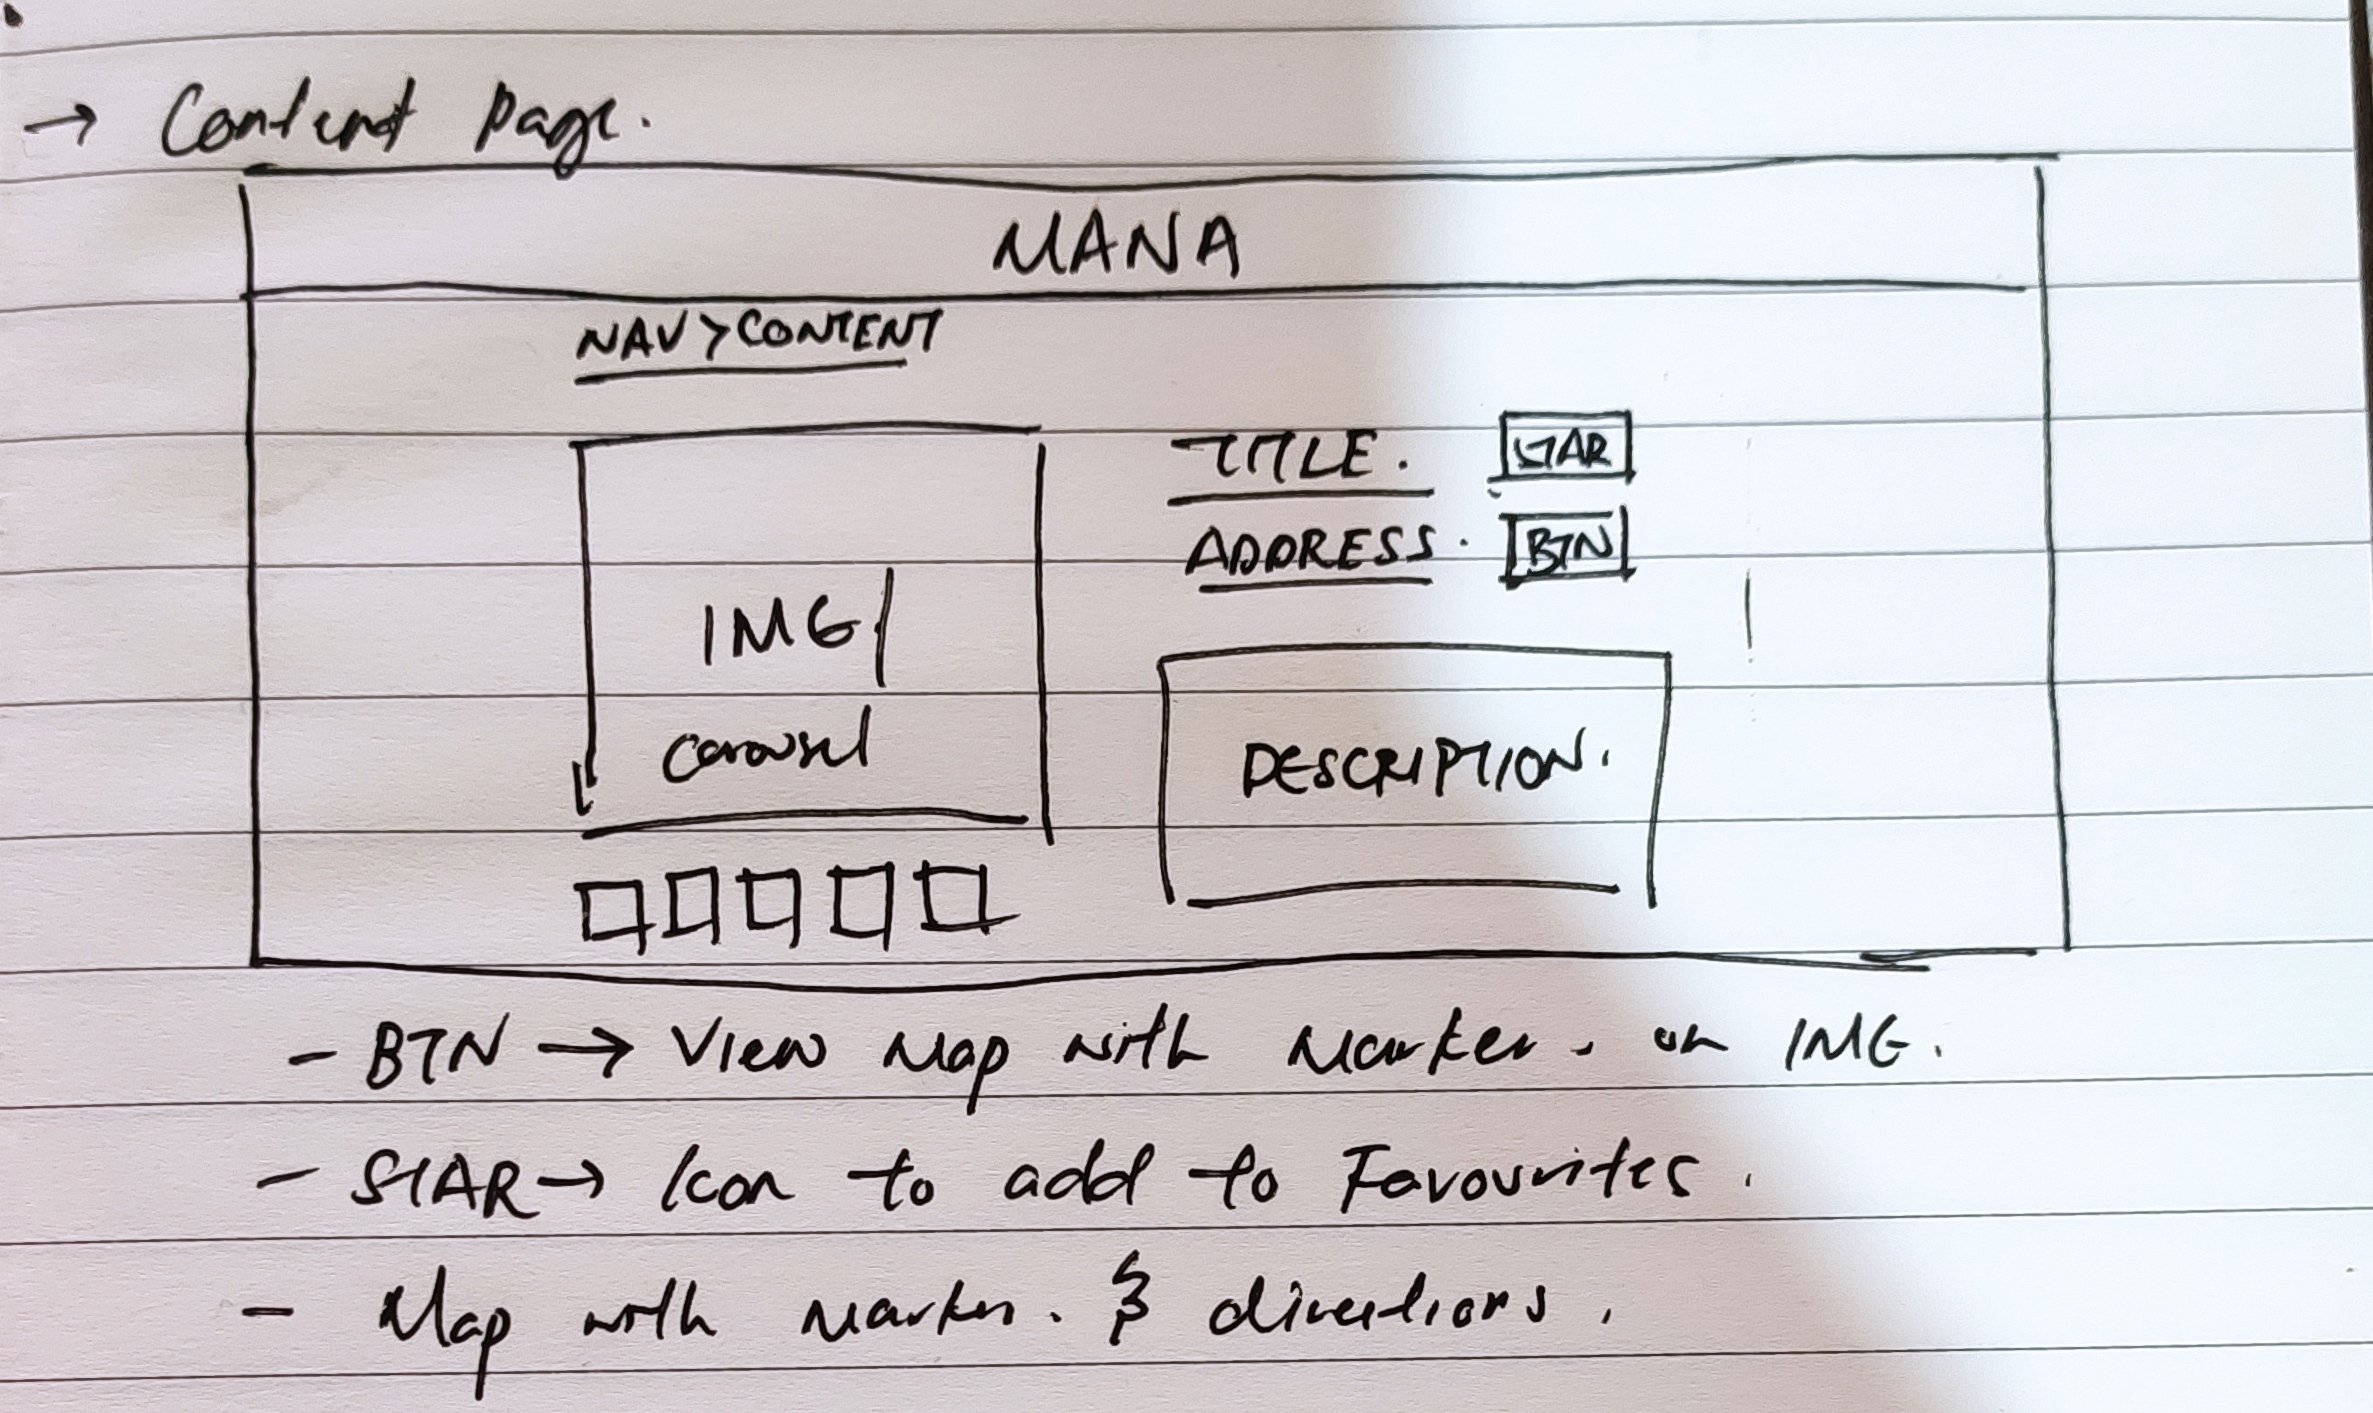 → Content Page.
MANA
NAV > CONTENT
TITLE. STAR
ADDRESS. BTN
IMG
Carousel
DESCRIPTION.
- BTN → View Map with Marker. on IMG.
- STAR → Icon to add to Favourites.
- Map with Marker. & directions.